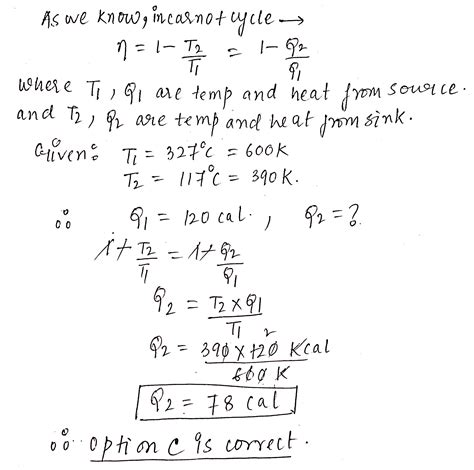 As we know, in carnot cycle →
η = 1 - T2/T1 = 1 - Q2/Q1
where T1, Q1 are temp and heat from source.
and T2, Q2 are temp and heat from sink.
Given: T1 = 327°C = 600K
T2 = 117°C = 390K.
∴ Q1 = 120 cal., Q2 = ?
1 + T2/T1 = 1 + Q2/Q1
Q2 = T2 × Q1 / T1
Q2 = 390 × 120 K cal / 600 K
2
Q2 = 78 cal
∴ option C is correct.